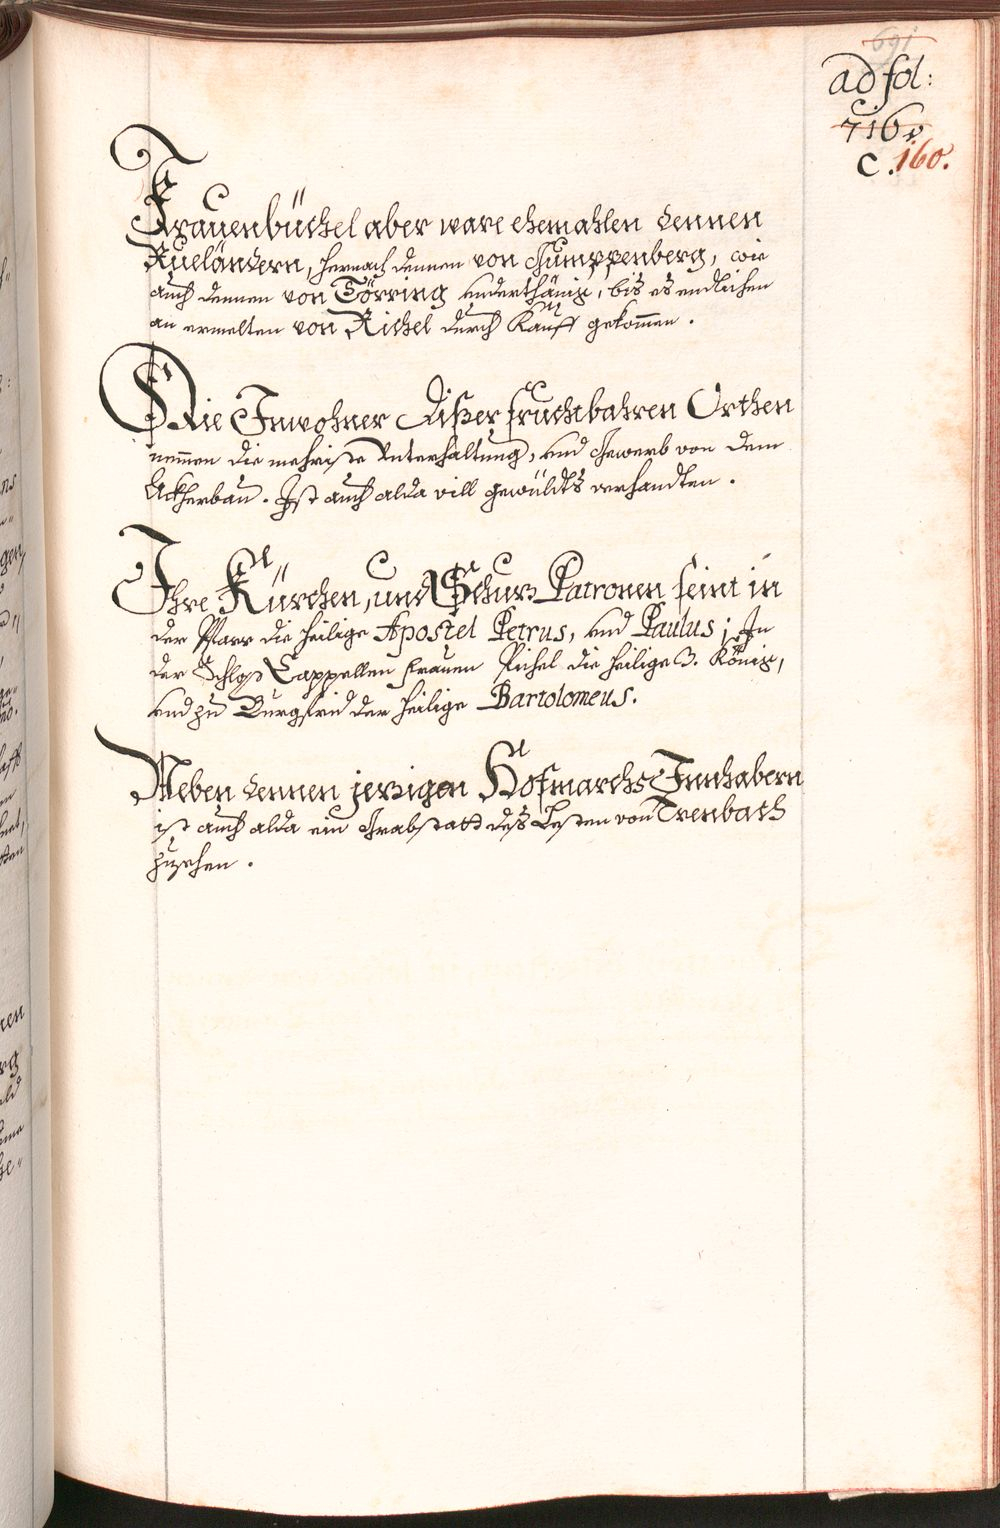 691
ad fol:
716.
c. 160.
Frauenbüchel aber ware ehemahlen dennen
Rueländern, hernach dennen von Gumppenberg, wie
auch dennen von Törring underthänig, bis es endlichen
an ermelten von Pichel durch Kauff gekommen.
Die Inwohner diser fruchtbahren Orthen
nemmen die mehriste Unterhaltung, und Gewerb von dem
Ackherbau. Ist auch alda vill gewüldts verhandten.
Ihre Kürchen, und Schuz Patronen seint in
der Pfarr die heilige Apostel Petrus, und Paulus; In
der Schloss Cappellen Frauen Pichel die heilige 3. König,
und zu Burgfrid der heilige Bartolomeus.
Neben dennen jezigen Hofmarchs Innhabern
ist auch alda ein Grabstatt dess Lesten von Trenbach
zusehen.